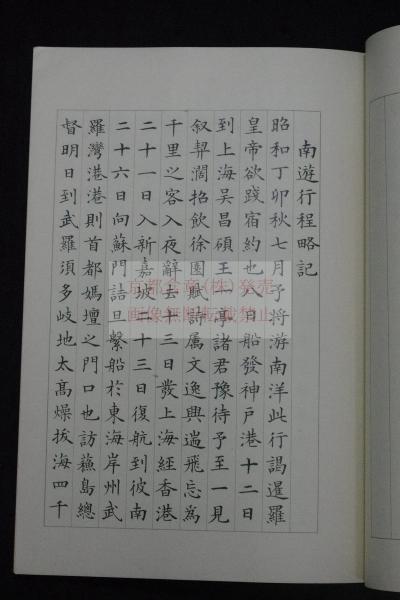 南遊行程略記
昭和丁卯秋七月予將游南洋此行謁暹羅
皇帝欲踐宿約也八日船發神戸港十二日
到上海吴昌碩王一亭諸君豫待予至一見
叙契濶招飲徐園賦詩属文逸興遄飛忘為
千里之客入夜辭去十三日發上海經香港
二十一日入新嘉坡二十三日復航到彼南
二十六日向蘇門詰旦繫船於東海岸州武
羅灣港港則首都媽壇之門口也訪蘓島總
督明日到武羅須多岐地太髙燥拔海四千
京都合商(株)発売
画像無断転載禁止